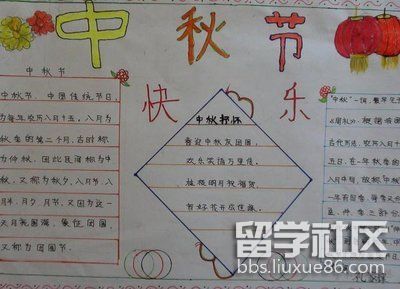 中秋节
快乐
中秋节
中秋节,中国传统节日,
为每年农历八月十五,八月为
秋季的第二个月,古时称
为仲秋,因此民间称为中
秋,又称为秋夕,八月节,
八月半,月夕,月节,又因为这一
天月亮圆满,象征团圆,
又称为团圆节。
中秋抒怀
喜迎中秋友团圆,
欢乐笑语万里传。
月我福贺,
花开
“中秋”一词,最早见于
《周礼》,根据
古代历法,农历八月十五
日,在一年秋季的
八月中旬,故称“中秋”
一年有四季,每季又分
孟、仲、季三部分
留学社区
bbs.liuxue86.com